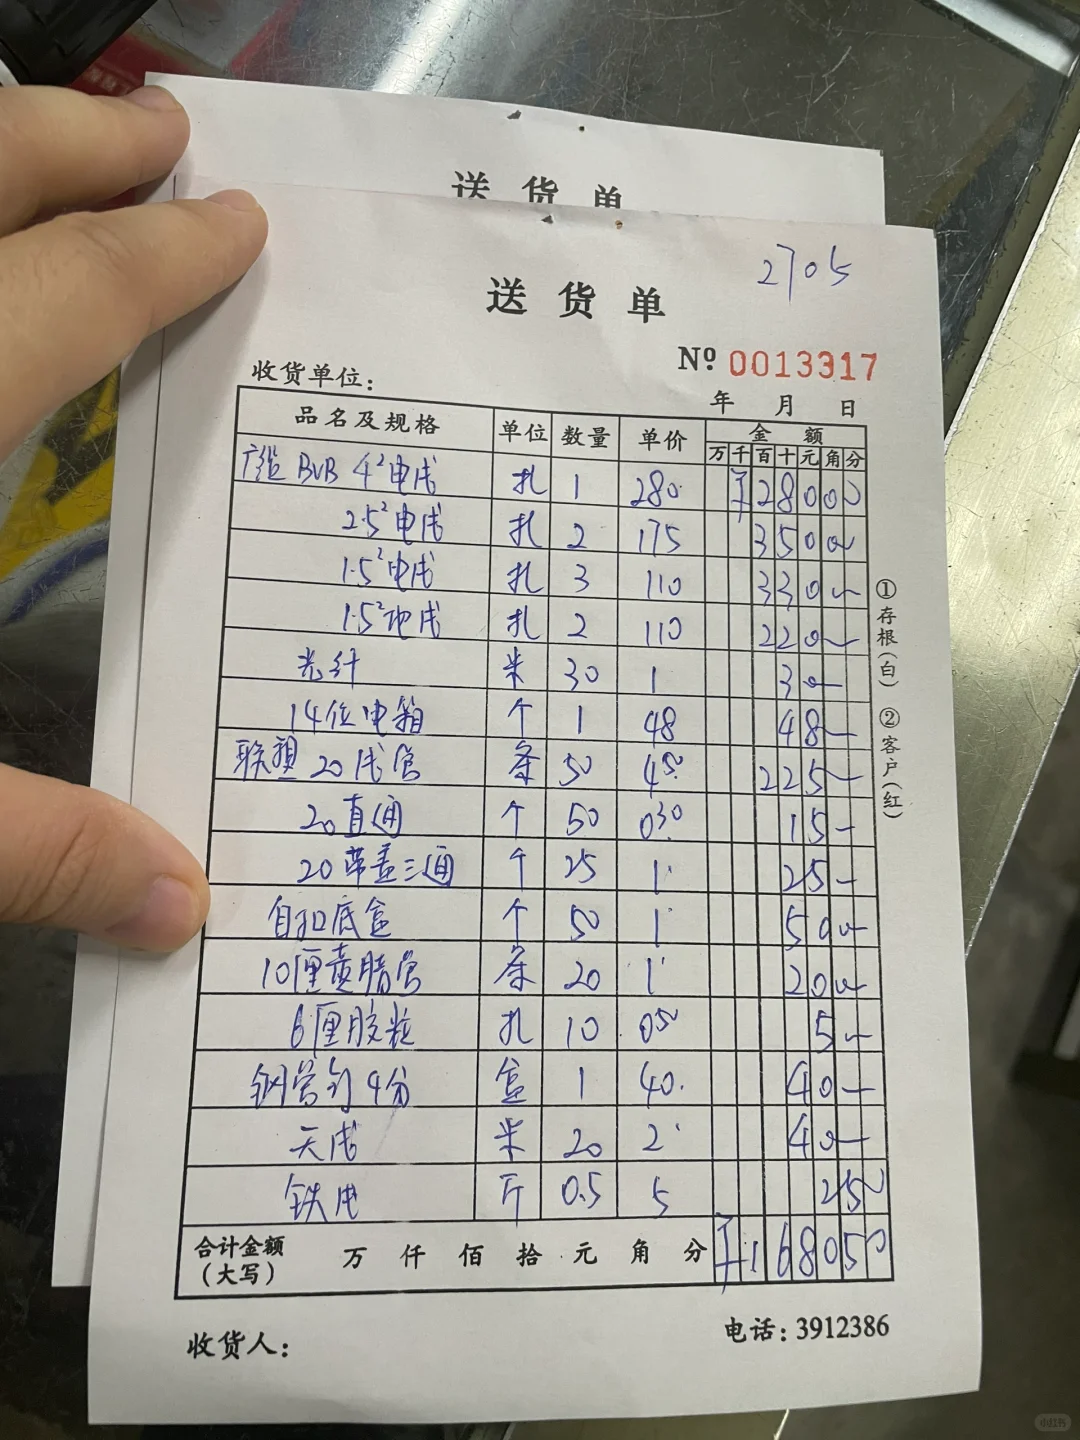 送货单
2705
送货单
Nº 0013317
收货单位：
年 月 日
品名及规格 单位 数量 单价 金额
万 千 百 十 元 角 分
广缆 BVB 4² 电线 扎 1 280. ¥ 280 0 0
2.5² 电线 扎 2 175 350 0 0
1.5² 电线 扎 3 110 330 —
1.5² 地线 扎 2 110 220 —
光纤 米 30 1 30 —
14位电箱 个 1 48 48 —
联塑 20线管 条 50 4.50 225 —
20直通 个 50 0.30 15 —
20带盖三通 个 25 1. 25 —
自扣底盒 个 50 1 50 0 —
10厘黄腊管 条 20 1. 20 0 —
6厘胶粒 扎 10 0.50 5 —
钢管钉 4分 盒 1 40. 40 —
天线 米 20 2. 40 —
铁线 斤 0.5 5 2 5 0
合计金额（大写） 万 仟 佰 拾 元 角 分 ¥ 1 6 8 0 5 0
①存根（白） ②客户（红）
收货人：
电话：3912386
小红书